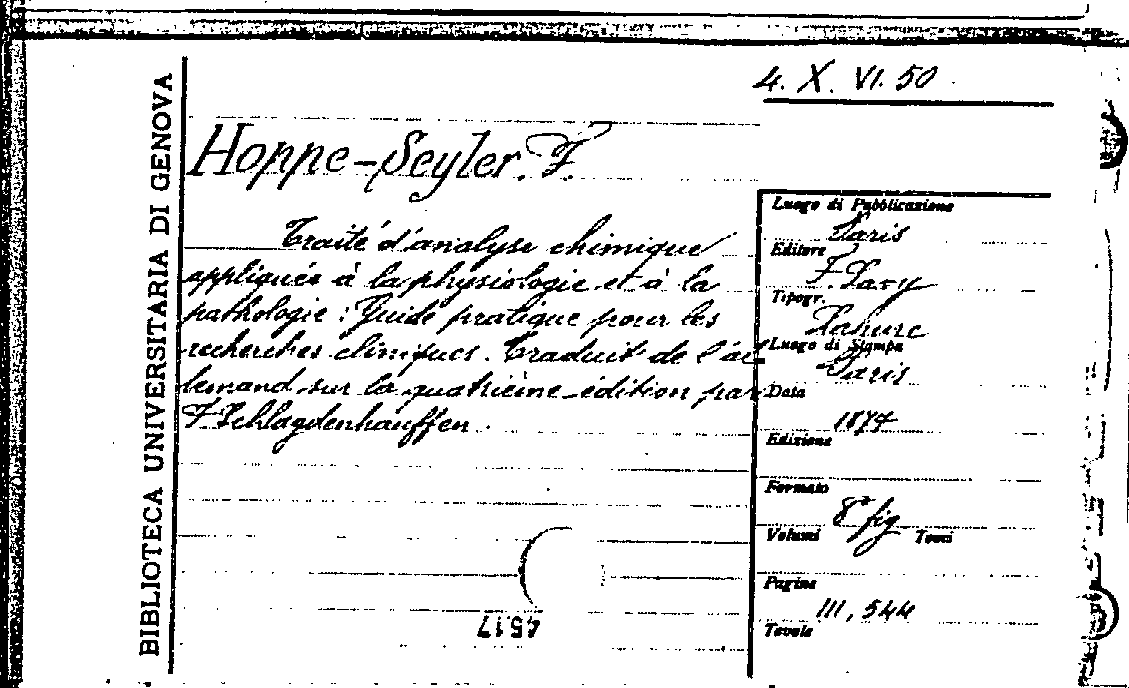 4. X. VI. 50
BIBLIOTECA UNIVERSITARIA DI GENOVA
Hoppe-Seyler. F.
Traité d'analyse chimique
appliquée à la physiologie et à la
pathologie : Guide pratique pour les
recherches cliniques. Traduit de l'al
lemand sur la quatrième édition par
F Schlagdenhauffen
Luogo di Pubblicazione
Paris
Editore
F. Savy
Tipogr.
Lahure
Luogo di Stampa
Paris
Data
1874
Edizione
Formato
8° fig
Volumi Tomi
Pagine
III, 544
Tavole
4517